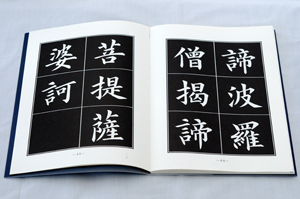 諦波羅
僧揭諦
菩提薩
婆訶